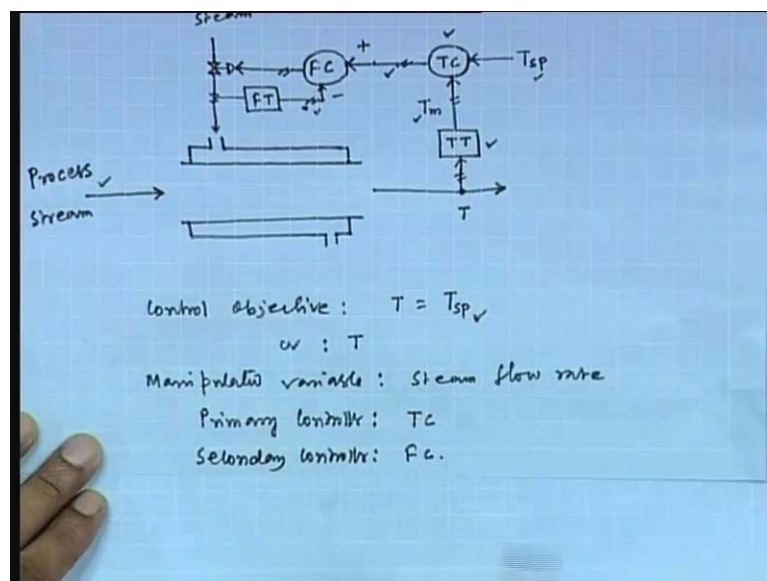 steam
+
FC
TC
Tsp
FT
-
Tm
TT
Process
stream
T
Control objective : T = Tsp
CV : T
Manipulated variable : Steam flow rate
Primary Controller : TC
Secondary Controller : FC.